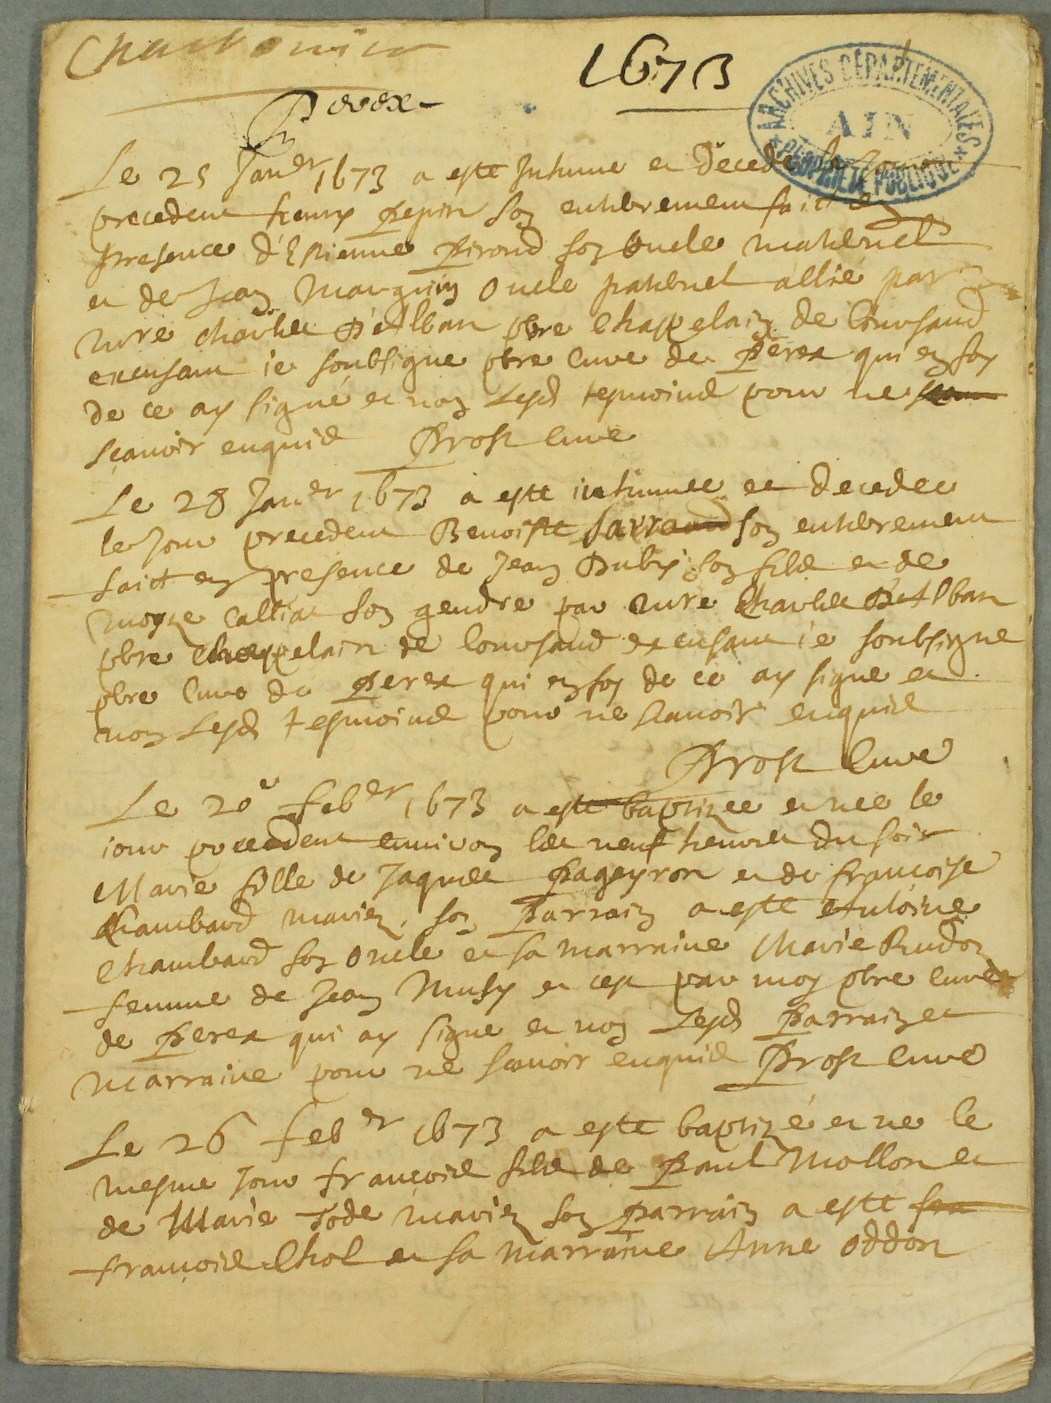 1673
ARCHIVES DÉPARTEMENTALES
AIN
PROPRIÉTÉ PUBLIQUE
Perex
Le 25 Janer 1673 a este Inhumé et Decedé le Jour
precedent Pepin son enterrement faict en
presence d'Estienne Pirond son oncle maternel
et de Jean Marguin oncle paternel allié par
mre Charles D'Alban pbre Chappelain de
ie soubsigne pbre Cure de Perex qui en foy
de ce ay signé et non Lesd tesmoins pour ne
scavoir enquis Prost Cure
Le 28 Janer 1673 a este inhumee et decedee
le Jour precedent Benoiste son enterrement
faict en presence de Jean Dubis son fils et de
son gendre par mre Charles D'Alban
pbre Chappelain de ie soubsigne
pbre Cure de Perex qui en foy de ce ay signe et
non Lesd tesmoins pour ne scavoir enquis
Prost Cure
Le 20e feber 1673 a este baptizee et nee le
iour precedent environ les neuf heures du soir
Marie fille de Jaques Pageyron et de francoise
Chambard mariez, son Parrain a este Antoine
Chambard son oncle et sa marraine Marie Rudon
femme de Jean Musy et ce par moy pbre cure
de Perex qui ay signe et non Lesd Parrain et
marraine pour ne scavoir enquis Prost Cure
Le 26 feber 1673 a este baptizé et né le
mesme Jour francois fils de Paul Mollon et
de Marie Tode mariez son parrain a este
francois Chol et sa marraine Anne Oddon